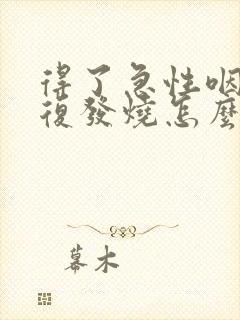 得了急性咽
復發燒怎麼
幕木